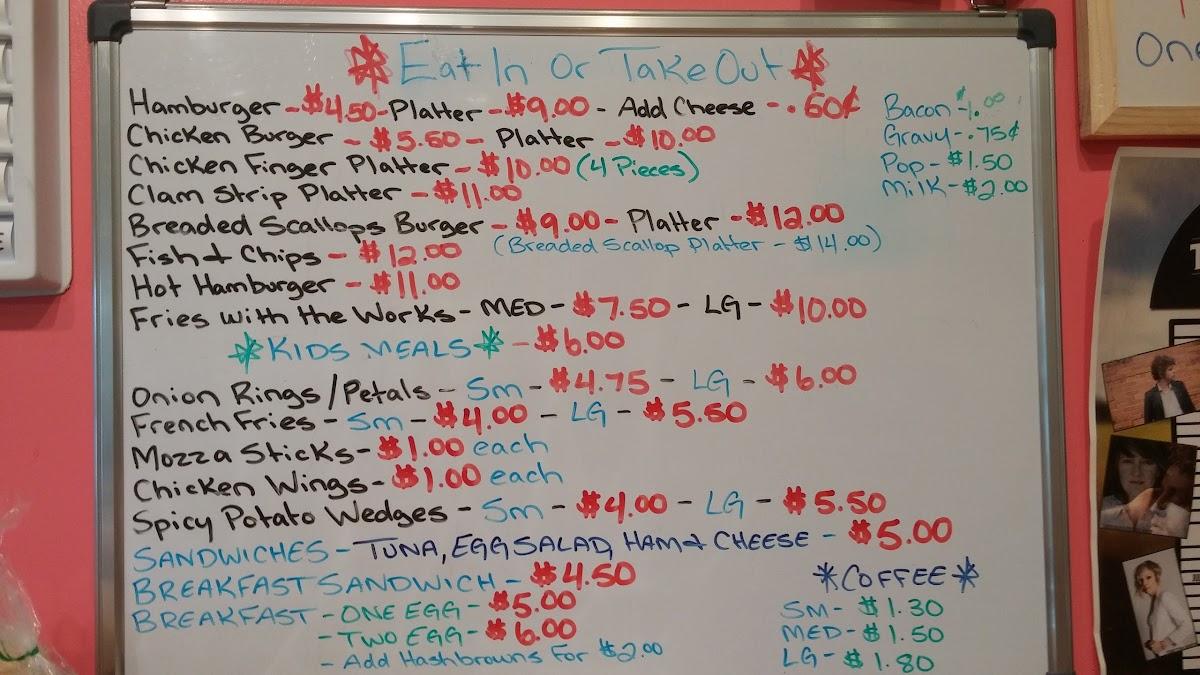 Eat In Or Take Out
Hamburger - $4.50 - Platter - $9.00 - Add Cheese - .60¢
Chicken Burger - $5.50 - Platter - $10.00
Chicken Finger Platter - $10.00 (4 Pieces)
Clam Strip Platter - $11.00
Breaded Scallops Burger - $9.00 - Platter - $12.00
(Breaded Scallop Platter - $14.00)
Fish & Chips - $12.00
Hot Hamburger - $11.00
Fries with the Works - MED - $7.50 - LG - $10.00
*KIDS MEALS* - $6.00
Onion Rings/Petals - Sm - $4.75 - LG - $6.00
French Fries - Sm - $4.00 - LG - $5.50
Mozza Sticks - $1.00 each
Chicken Wings - $1.00 each
Spicy Potato Wedges - Sm - $4.00 - LG - $5.50
SANDWICHES - TUNA, EGG SALAD, HAM & CHEESE - $5.00
BREAKFAST SANDWICH - $4.50
BREAKFAST - ONE EGG - $5.00
- TWO EGG - $6.00
- Add Hashbrowns For $2.00
Bacon - $1.00
Gravy - .75¢
Pop - $1.50
Milk - $2.00
*COFFEE*
SM - $1.30
MED - $1.50
LG - $1.80
One